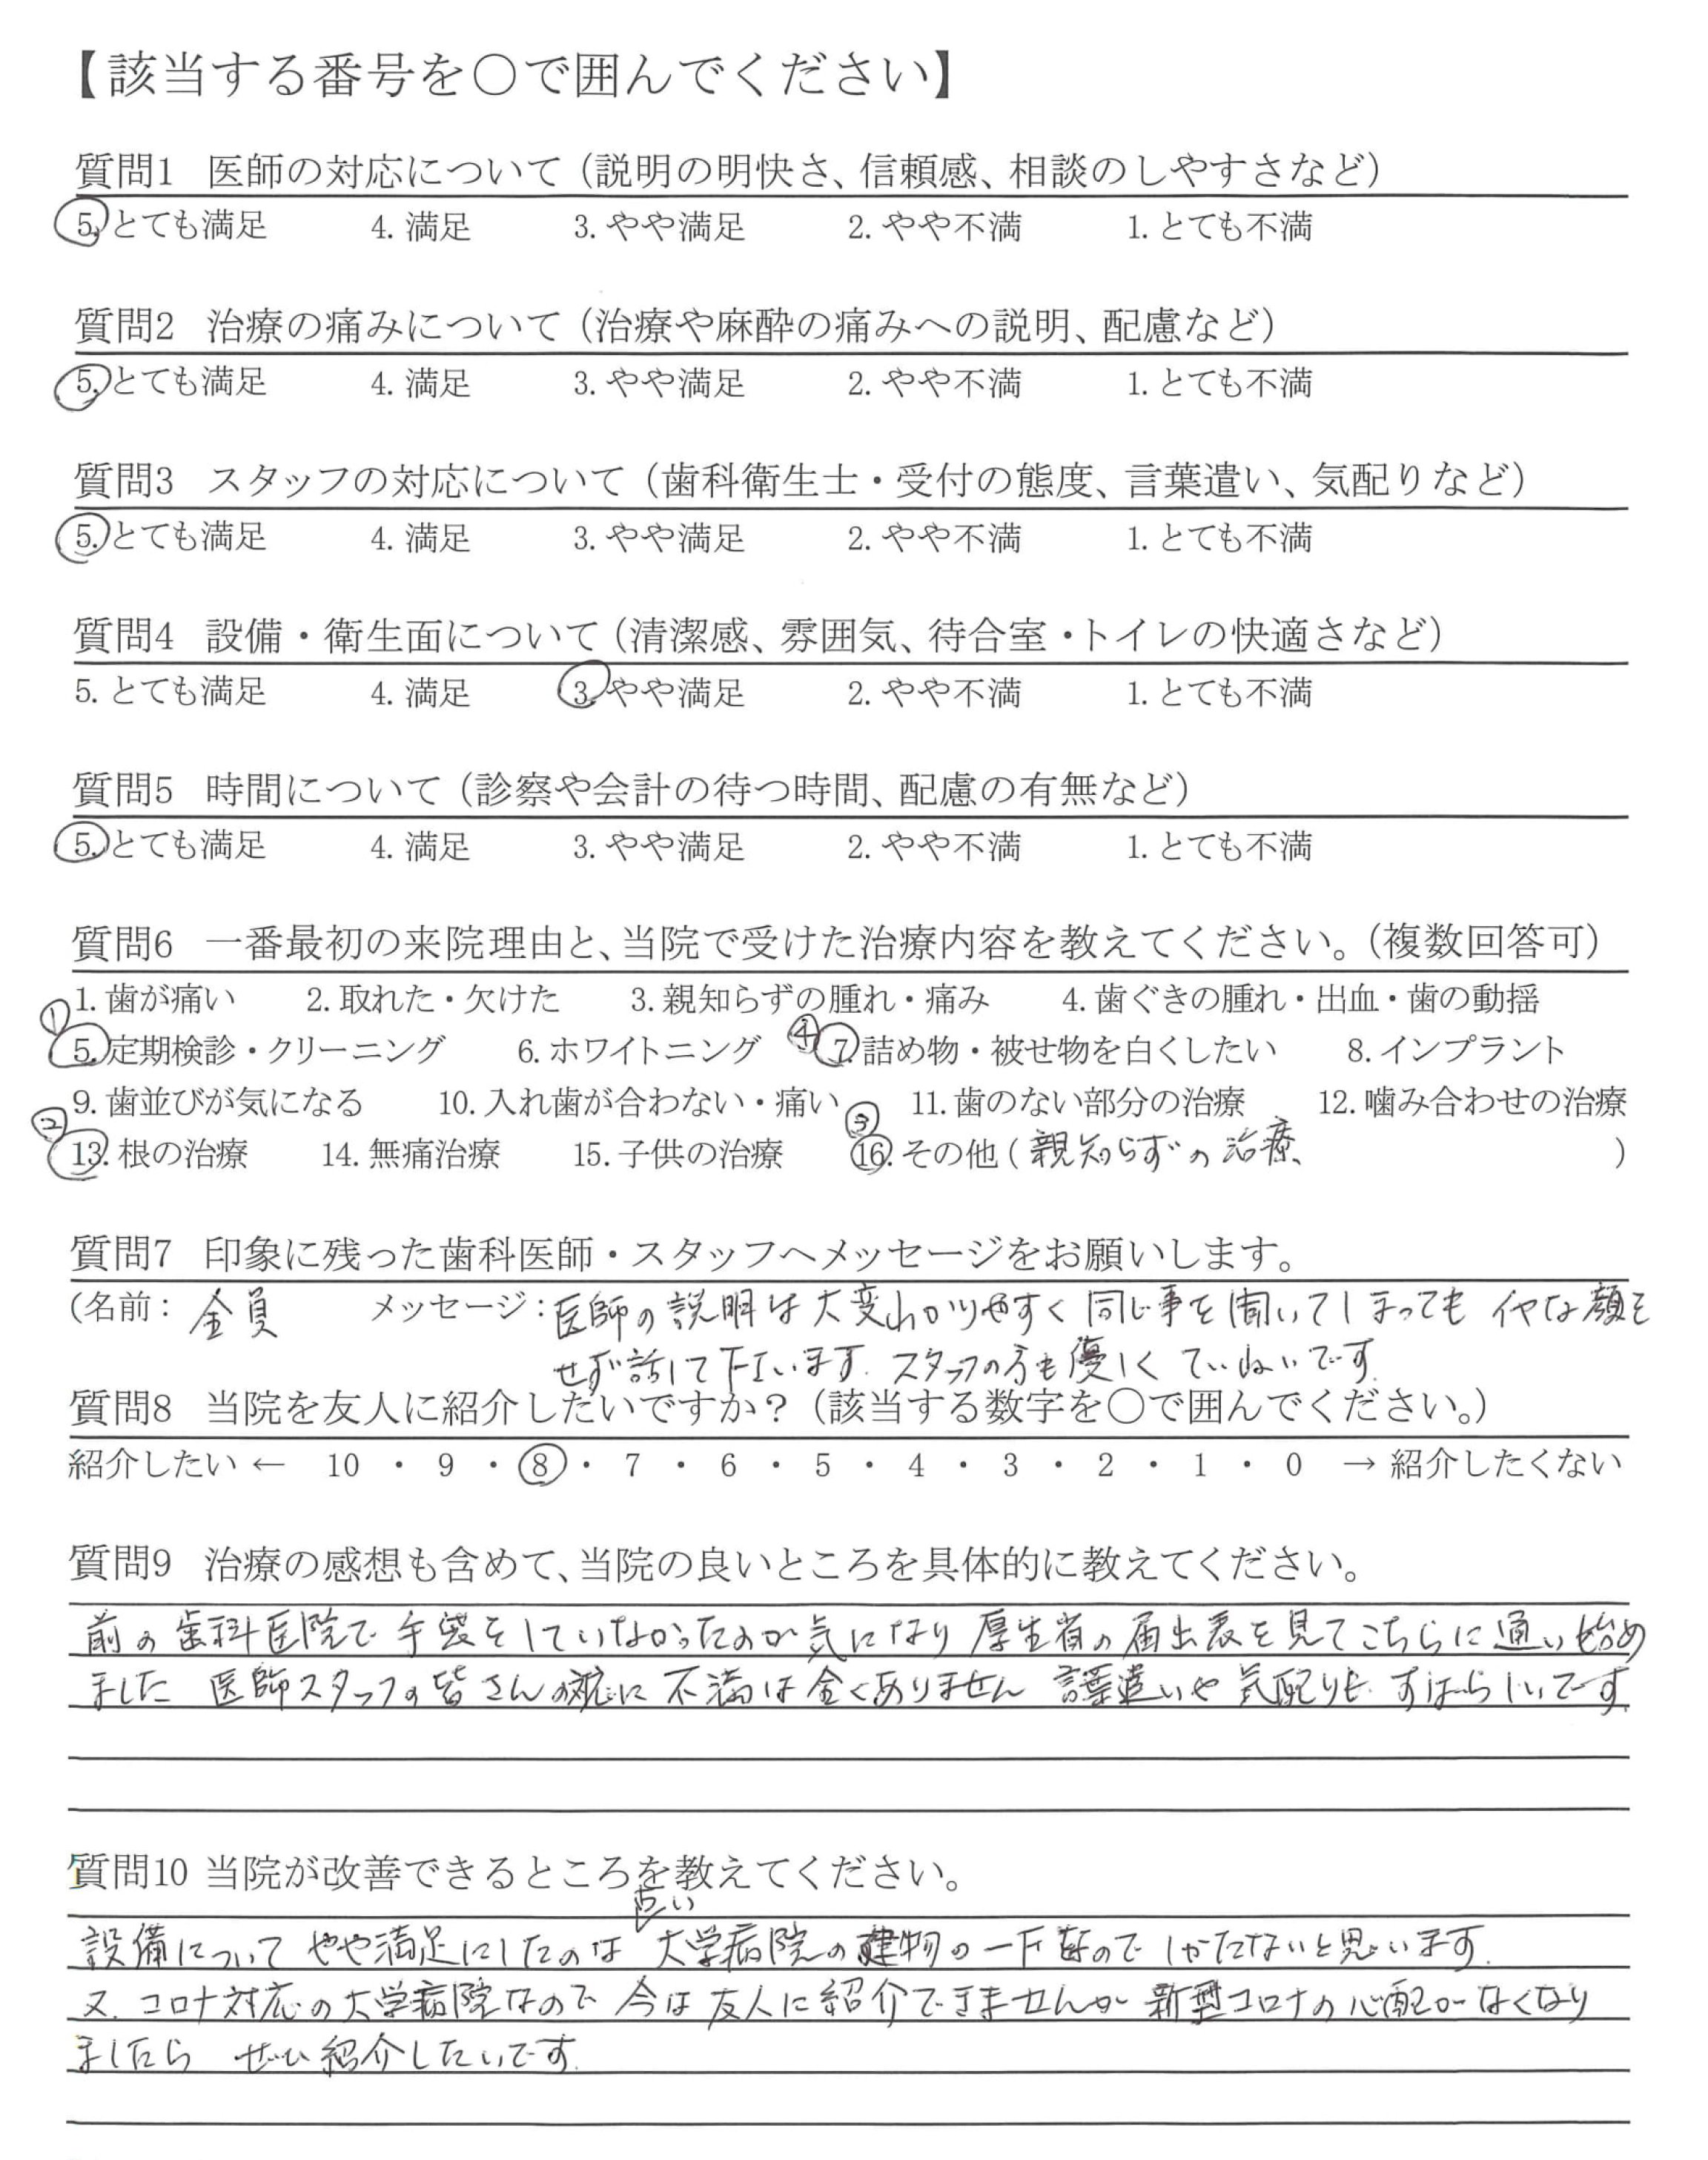 【該当する番号を〇で囲んでください】
質問1 医師の対応について（説明の明快さ、信頼感、相談のしやすさなど）
5. とても満足 4. 満足 3. やや満足 2. やや不満 1. とても不満
質問2 治療の痛みについて（治療や麻酔の痛みへの説明、配慮など）
5. とても満足 4. 満足 3. やや満足 2. やや不満 1. とても不満
質問3 スタッフの対応について（歯科衛生士・受付の態度、言葉遣い、気配りなど）
5. とても満足 4. 満足 3. やや満足 2. やや不満 1. とても不満
質問4 設備・衛生面について（清潔感、雰囲気、待合室・トイレの快適さなど）
5. とても満足 4. 満足 3. やや満足 2. やや不満 1. とても不満
質問5 時間について（診察や会計の待つ時間、配慮の有無など）
5. とても満足 4. 満足 3. やや満足 2. やや不満 1. とても不満
質問6 一番最初の来院理由と、当院で受けた治療内容を教えてください。（複数回答可）
1. 歯が痛い 2. 取れた・欠けた 3. 親知らずの腫れ・痛み 4. 歯ぐきの腫れ・出血・歯の動揺
① 5. 定期検診・クリーニング 6. ホワイトニング ④ 7. 詰め物・被せ物を白くしたい 8. インプラント
9. 歯並びが気になる 10. 入れ歯が合わない・痛い 11. 歯のない部分の治療 12. 噛み合わせの治療
② 13. 根の治療 14. 無痛治療 15. 子供の治療 ③ 16. その他（親知らずの治療 ）
質問7 印象に残った歯科医師・スタッフへメッセージをお願いします。
（名前：全員 メッセージ：医師の説明は大変わかりやすく同じ事を聞いてしまってもイヤな顔を
せず話して下さいます. スタッフの方も優しくていねいです.
質問8 当院を友人に紹介したいですか？（該当する数字を〇で囲んでください。）
紹介したい ← 10 ・ 9 ・ 8 ・ 7 ・ 6 ・ 5 ・ 4 ・ 3 ・ 2 ・ 1 ・ 0 → 紹介したくない
質問9 治療の感想も含めて、当院の良いところを具体的に教えてください。
前の歯科医院で手袋をしていなかったのが気になり厚生省の届出表を見てこちらに通い始め
ました 医師スタッフの皆さんの対応に不満は全くありません 言葉遣いや気配りも すばらしいです.
質問10 当院が改善できるところを教えてください。
設備についてやや満足にしたのは古い大学病院の建物の一下なのでしかたないと思います.
又. コロナ対応の大学病院なので今は友人に紹介できませんが新型コロナの心配がなくなり
ましたら ぜひ紹介したいです.